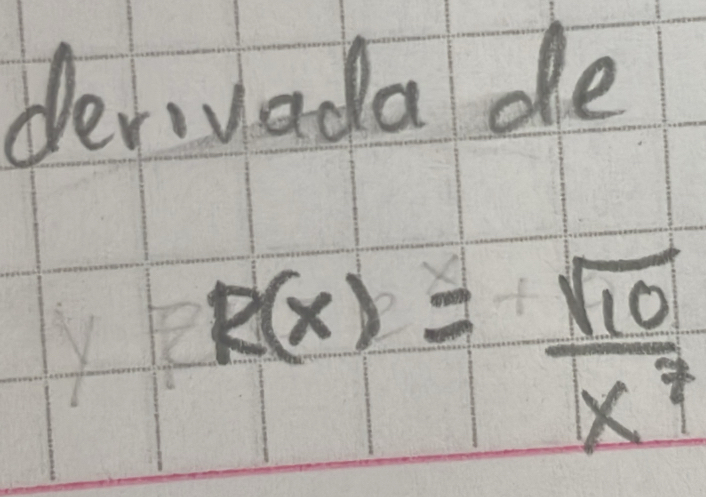 derivada de
R(x) = √10 / x⁷